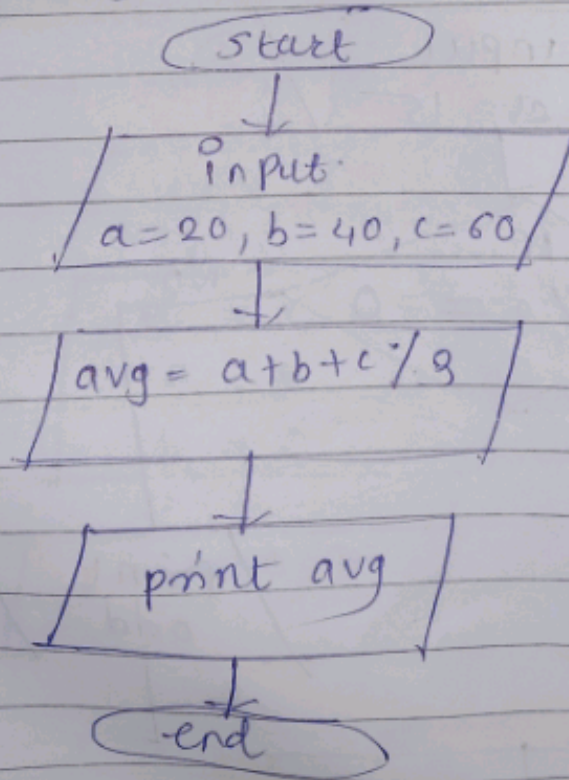 start
input
a=20, b=40, c=60
avg = a+b+c % 3
print avg
end